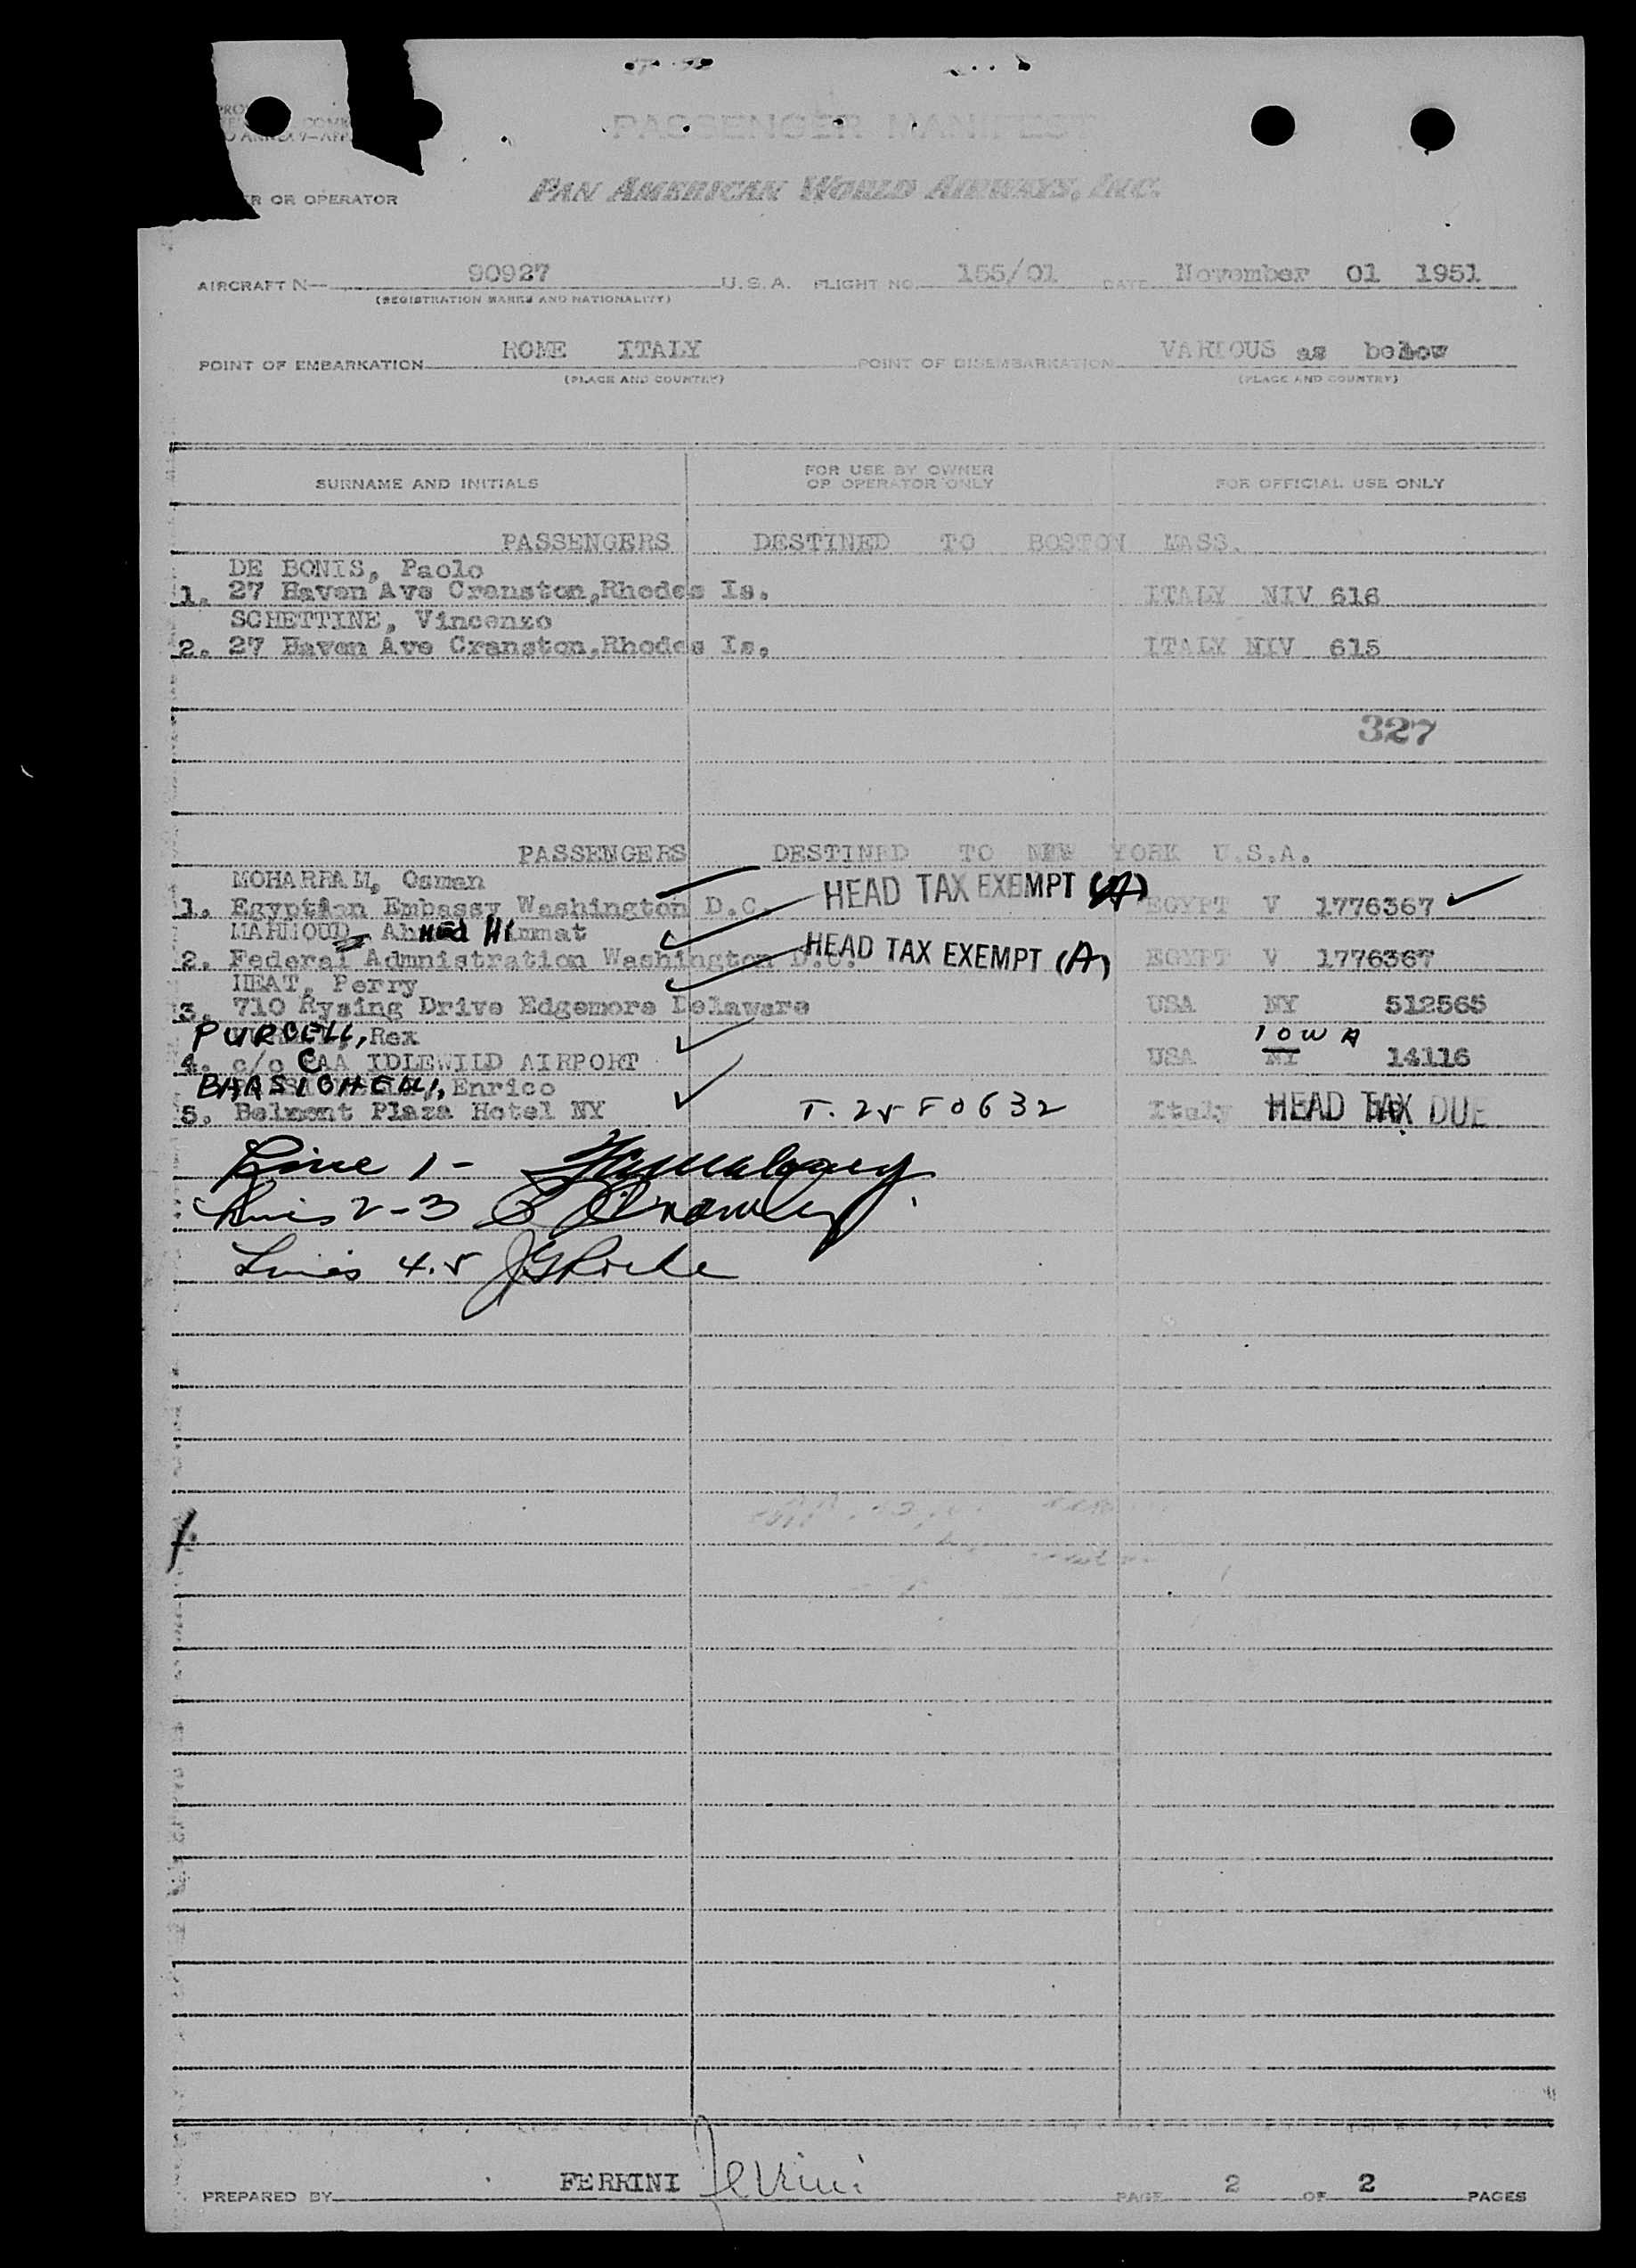 PASSENGER MANIFEST
OR OPERATOR
PAN AMERICAN WORLD AIRWAYS, INC.
AIRCRAFT N— 90927 U.S.A. FLIGHT NO. 155/01 DATE November 01 1951
(REGISTRATION MARKS AND NATIONALITY)
POINT OF EMBARKATION ROME ITALY POINT OF DISEMBARKATION VARIOUS as below
(PLACE AND COUNTRY) (PLACE AND COUNTRY)
SURNAME AND INITIALS FOR USE BY OWNER OR OPERATOR ONLY FOR OFFICIAL USE ONLY
PASSENGERS DESTINED TO BOSTON MASS.
DE BONIS, Paolo
1. 27 Haven Ave Cranston,Rhodes Is. ITALY NIV 616
SCHETTINE, Vincenzo
2. 27 Haven Ave Cranston,Rhodes Is. ITALY NIV 615
327
PASSENGERS DESTINED TO NEW YORK U.S.A.
MOHARRAM, Osman HEAD TAX EXEMPT (A)
1. Egyptian Embassy Washington D.C. EGYPT V 1776367
MAHMOUD, Ahmed Himmat
2. Federal Admnistration Washington D.C. HEAD TAX EXEMPT (A) EGYPT V 1776367
HEAT, Perry
3. 710 Rysing Drive Edgemore Delaware USA NY 512565
PURCELL, Rex IOWA
4. c/o CAA IDLEWILD AIRPORT USA NY 14116
Enrico
5. Belmont Plaza Hotel NY T. 25 F0632 Italy HEAD TAX DUE
Line 1 -
Lines 2-3
Lines 4.5
PREPARED BY FERRINI Ferrini PAGE 2 OF 2 PAGES